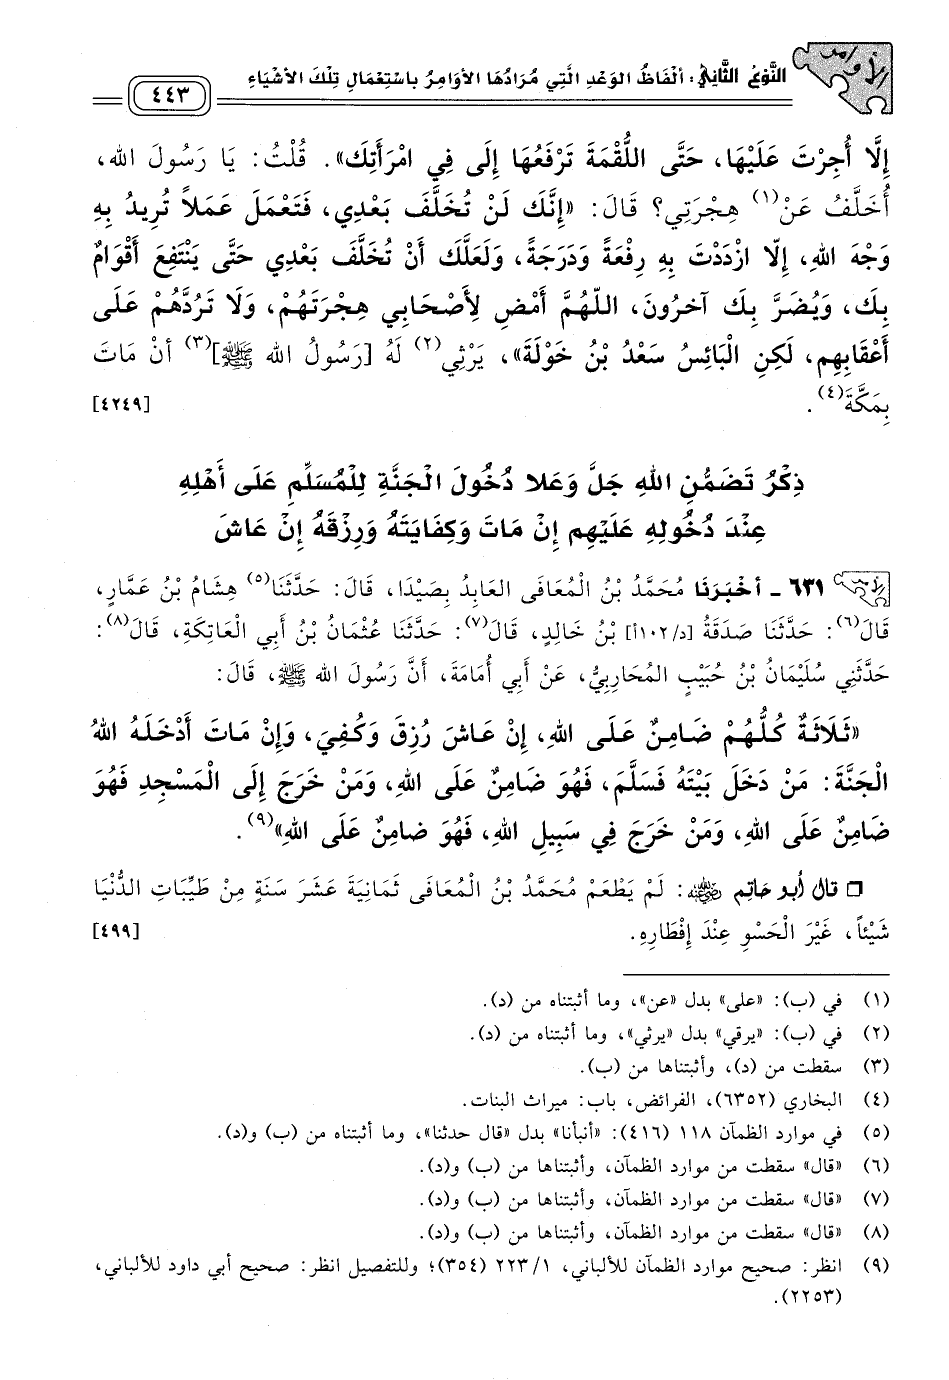 الأوامر
النَّوْعُ الثَّانِي: أَلْفَاظُ الوَعْدِ الَّتِي مُرَادُهَا الأَوَامِرُ بِاسْتِعْمَالِ تِلْكَ الأَشْيَاءِ
٤٤٣
إِلَّا أُجِرْتَ عَلَيْهَا، حَتَّى اللُّقْمَةَ تَرْفَعُهَا إِلَى فِي امْرَأَتِكَ». قُلْتُ: يَا رَسُولَ الله،
أُخَلَّفُ عَنْ(١) هِجْرَتِي؟ قَالَ: «إِنَّكَ لَنْ تُخَلَّفَ بَعْدِي، فَتَعْمَلَ عَمَلاً تُرِيدُ بِهِ
وَجْهَ اللهِ، إِلَّا ازْدَدْتَ بِهِ رِفْعَةً وَدَرَجَةً، وَلَعَلَّكَ أَنْ تُخَلَّفَ بَعْدِي حَتَّى يَنْتَفِعَ أَقْوَامٌ
بِكَ، وَيُضَرَّ بِكَ آخرُونَ، اللّهُمَّ أَمْضِ لِأَصْحَابِي هِجْرَتَهُمْ، وَلَا تَرُدَّهُمْ عَلَى
أَعْقَابِهِم، لَكِنِ الْبَائِسُ سَعْدُ بْنُ خَوْلَةَ»، يَرْثِي(٢) لَهُ [رَسُولُ الله ﷺ](٣) أَنْ مَاتَ
بِمَكَّةَ(٤). [٤٢٤٩]
ذِكْرُ تَضَمُّنِ اللهِ جَلَّ وَعَلا دُخُولَ الْجَنَّةِ لِلْمُسَلِّمِ عَلَى أَهْلِهِ
عِنْدَ دُخُولِهِ عَلَيْهِم إِنْ مَاتَ وَكِفَايَتَهُ وَرِزْقَهُ إِنْ عَاشَ
٦٣١ - أَخْبَرَنَا مُحَمَّدُ بْنُ الْمُعَافَى العَابِدُ بِصَيْدَا، قَالَ: حَدَّثَنَا(٥) هِشَامُ بْنُ عَمَّارٍ،
قَالَ(٦): حَدَّثَنَا صَدَقَةُ [د/١٠٢أ] بْنُ خَالِدٍ، قَالَ(٧): حَدَّثَنَا عُثْمَانُ بْنُ أَبِي الْعَاتِكَةِ، قَالَ(٨):
حَدَّثَنِي سُلَيْمَانُ بْنُ حُبَيْبٍ المُحَارِبِيُّ، عَنْ أَبِي أُمَامَةَ، أَنَّ رَسُولَ الله ﷺ، قَالَ:
«ثَلَاثَةٌ كُلُّهُمْ ضَامِنٌ عَلَى اللهِ، إِنْ عَاشَ رُزِقَ وَكُفِيَ، وَإِنْ مَاتَ أَدْخَلَهُ اللهُ
الْجَنَّةَ: مَنْ دَخَلَ بَيْتَهُ فَسَلَّمَ، فَهُوَ ضَامِنٌ عَلَى اللهِ، وَمَنْ خَرَجَ إِلَى الْمَسْجِدِ فَهُوَ
ضَامِنٌ عَلَى اللهِ، وَمَنْ خَرَجَ فِي سَبِيلِ اللهِ، فَهُوَ ضامِنٌ عَلَى اللهِ»(٩).
□ قال أبو حاتم ﵁: لَمْ يَطْعَمْ مُحَمَّدُ بْنُ الْمُعَافَى ثَمَانِيَةَ عَشَرَ سَنَةٍ مِنْ طَيِّبَاتِ الدُّنْيَا
شَيْئاً، غَيْرَ الْحَسْوِ عِنْدَ إِفْطَارِهِ. [٤٩٩]
(١) في (ب): «على» بدل «عن»، وما أثبتناه من (د).
(٢) في (ب): «يرقي» بدل «يرثي»، وما أثبتناه من (د).
(٣) سقطت من (د)، وأثبتناها من (ب).
(٤) البخاري (٦٣٥٢)، الفرائض، باب: ميراث البنات.
(٥) في موارد الظمآن ١١٨ (٤١٦): «أنبأنا» بدل «قال حدثنا»، وما أثبتناه من (ب) و(د).
(٦) «قال» سقطت من موارد الظمآن، وأثبتناها من (ب) و(د).
(٧) «قال» سقطت من موارد الظمآن، وأثبتناها من (ب) و(د).
(٨) «قال» سقطت من موارد الظمآن، وأثبتناها من (ب) و(د).
(٩) انظر: صحيح موارد الظمآن للألباني، ١/ ٢٢٣ (٣٥٤)؛ وللتفصيل انظر: صحيح أبي داود للألباني،
(٢٢٥٣).